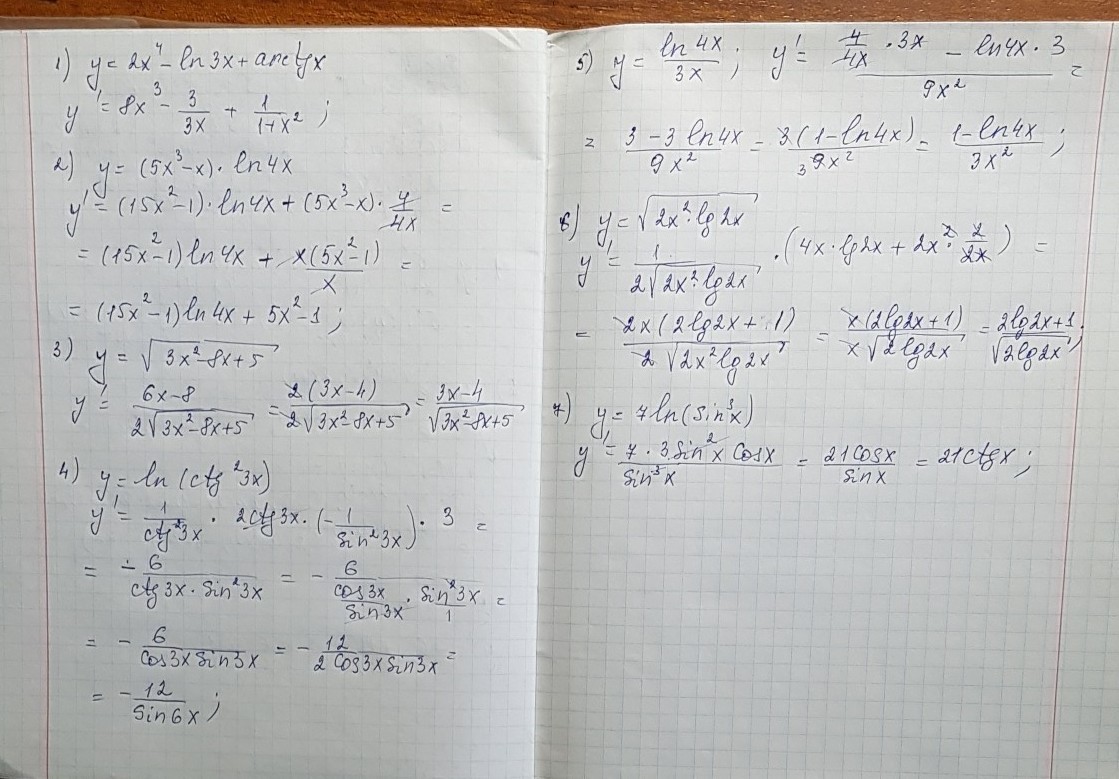 1) y = 2x⁴ - ln3x + arctgx
y' = 8x³ - 3/3x + 1/1+x² ;
2) y = (5x³-x) · ln4x
y' = (15x²-1) · ln4x + (5x³-x) · 4/4x =
= (15x²-1) ln4x + x(5x²-1)/x =
= (15x²-1) ln4x + 5x²-1 ;
3) y = √(3x²-8x+5)
y' = 6x-8/2√(3x²-8x+5) = 2(3x-4)/2√(3x²-8x+5) = 3x-4/√(3x²-8x+5)
4) y = ln(ctg²3x)
y' = 1/ctg²3x · 2ctg3x · (-1/sin²3x) · 3 =
= -6/ctg3x · sin²3x = - 6/(cos3x/sin3x · sin²3x/1) =
= - 6/cos3x sin3x = - 12/2cos3x sin3x =
= - 12/sin6x ;
5) y = ln4x/3x ; y' = (4/4x · 3x - ln4x · 3)/9x² =
= 3-3ln4x/9x² = 3(1-ln4x)/9x² = 1-ln4x/3x² ;
6) y = √(2x² · lg2x)
y' = 1/2√(2x² · lg2x) · (4x · lg2x + 2x² · 2/2x) =
= 2x(2lg2x + 1)/2√(2x²lg2x) = x(2lg2x+1)/x√(2lg2x) = 2lg2x+1/√(2lg2x) ;
7) y = 7ln(sin³x)
y' = 7 · 3sin²x cosx/sin³x = 21cosx/sinx = 21ctgx ;